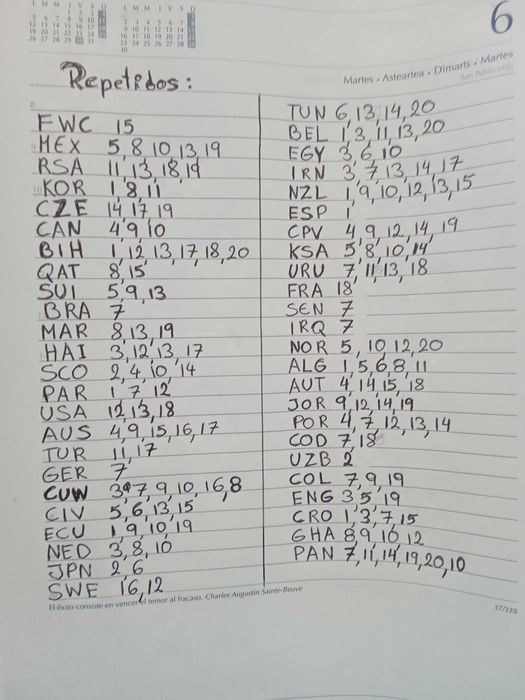 6
Martes • Asteartea • Dimarts • Martes
Repetidos:
FWC 15
MEX 5, 8, 10, 13, 19
RSA 11, 13, 18, 19
KOR 1, 8, 11
CZE 14, 17, 19
CAN 4, 9, 10
BIH 1, 12, 13, 17, 18, 20
QAT 8, 15
SUI 5, 9, 13
BRA 7
MAR 8, 13, 19
HAI 3, 12, 13, 17
SCO 2, 4, 10, 14
PAR 1, 7, 12
USA 12, 13, 18
AUS 4, 9, 15, 16, 17
TUR 11, 17
GER 7
CUW 3, 7, 9, 10, 16, 8
CIV 5, 6, 13, 15
ECU 1, 9, 10, 19
NED 3, 8, 10
JPN 2, 6
SWE 16, 12
TUN 6, 13, 14, 20
BEL 1, 3, 11, 13, 20
EGY 3, 6, 10
IRN 3, 7, 13, 14, 17
NZL 1, 9, 10, 12, 13, 15
ESP 1
CPV 4, 9, 12, 14, 19
KSA 5, 8, 10, 14
URU 7, 11, 13, 18
FRA 18
SEN 7
IRQ 7
NOR 5, 10, 12, 20
ALG 1, 5, 6, 8, 11
AUT 4, 14, 15, 18
JOR 9, 12, 14, 19
POR 4, 7, 12, 13, 14
COD 7, 18
UZB 2
COL 7, 9, 19
ENG 3, 5, 19
CRO 1, 3, 7, 15
GHA 8, 9, 10, 12
PAN 7, 11, 14, 19, 20, 10
El éxito consiste en vencer el temor al fracaso. Charles Augustin Sainte-Beuve
37/328